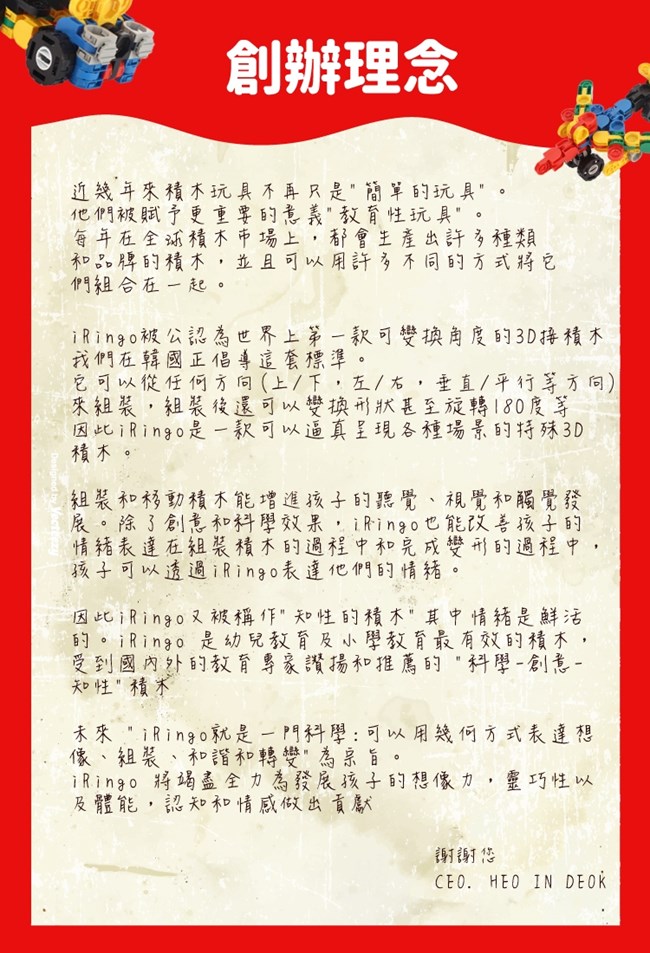 創辦理念
近幾年來積木玩具不再只是"簡單的玩具"。
他們被賦予更重要的意義"教育性玩具"。
每年在全球積木市場上，都會生產出許多種類
和品牌的積木，並且可以用許多不同的方式將它
們組合在一起。
iRingo被公認為世界上第一款可變換角度的3D接積木
我們在韓國正倡導這套標準。
它可以從任何方向(上/下，左/右，垂直/平行等方向)
來組裝，組裝後還可以變換形狀甚至旋轉180度等
因此iRingo是一款可以逼真呈現各種場景的特殊3D
積木。
組裝和移動積木能增進孩子的聽覺、視覺和觸覺發
展。除了創意和科學效果，iRingo也能改善孩子的
情緒表達在組裝積木的過程中和完成變形的過程中，
孩子可以透過iRingo表達他們的情緒。
因此iRingo又被稱作"知性的積木"其中情緒是鮮活
的。iRingo 是幼兒教育及小學教育最有效的積木，
受到國內外的教育專家讚揚和推薦的 "科學-創意-
知性"積木
未來 "iRingo就是一門科學:可以用幾何方式表達想
像、組裝、和諧和轉變"為宗旨。
iRingo 將竭盡全力為發展孩子的想像力，靈巧性以
及體能，認知和情感做出貢獻
謝謝您
CEO. HEO IN DEOK